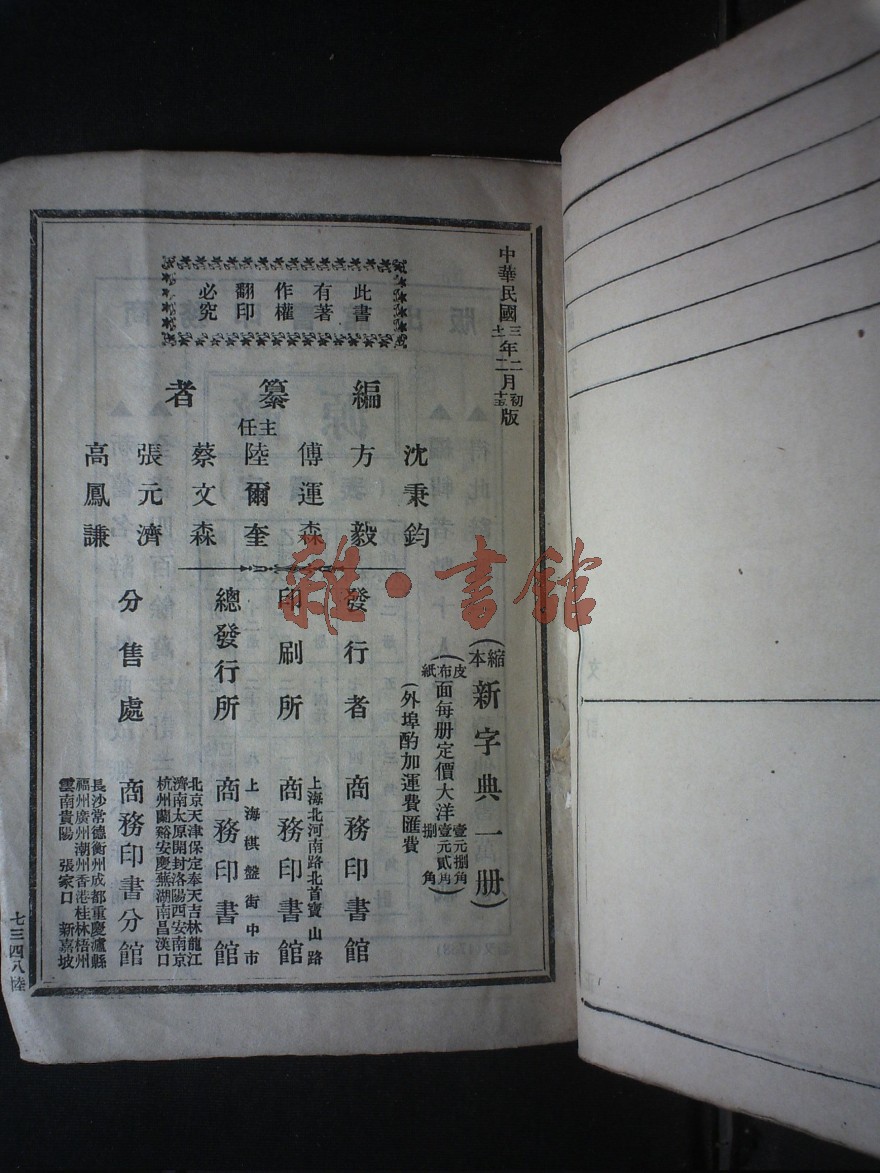 中華民國三年二月初版
十二二十五
此書
有著
作權
翻印
必究
編纂者
沈秉鈞
方毅
傅運森
主任
陸爾奎
蔡文森
張元濟
高鳳謙
(縮本)新字典一冊
(皮布紙面每册定價大洋壹元捌角壹元貳角捌角)
(外埠酌加運費匯費)
發行者 商務印書館
印刷所 上海北河南路北首寶山路 商務印書館
總發行所 上海棋盤街中市 商務印書館
分售處
北京天津保定奉天吉林龍江
濟南太原開封洛陽西安南京
杭州蘭谿安慶蕪湖南昌漢口
商務印書分館
長沙常德衡州成都重慶瀘縣
福州廣州潮州香港桂林梧州
雲南貴陽 張家口 新嘉坡
七三四八陸
雜·書館